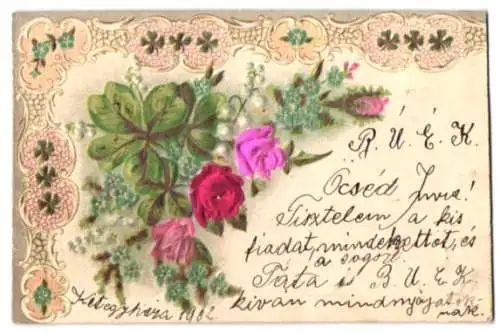 B. Ú. É. K.
Öcséd Imre!
Tisztelem a kis
fiadat, mindkettőt, és
a sógort
Táta is B. U. E. K.
kíván mindnyájatok
nak.
Kétegyháza 1902